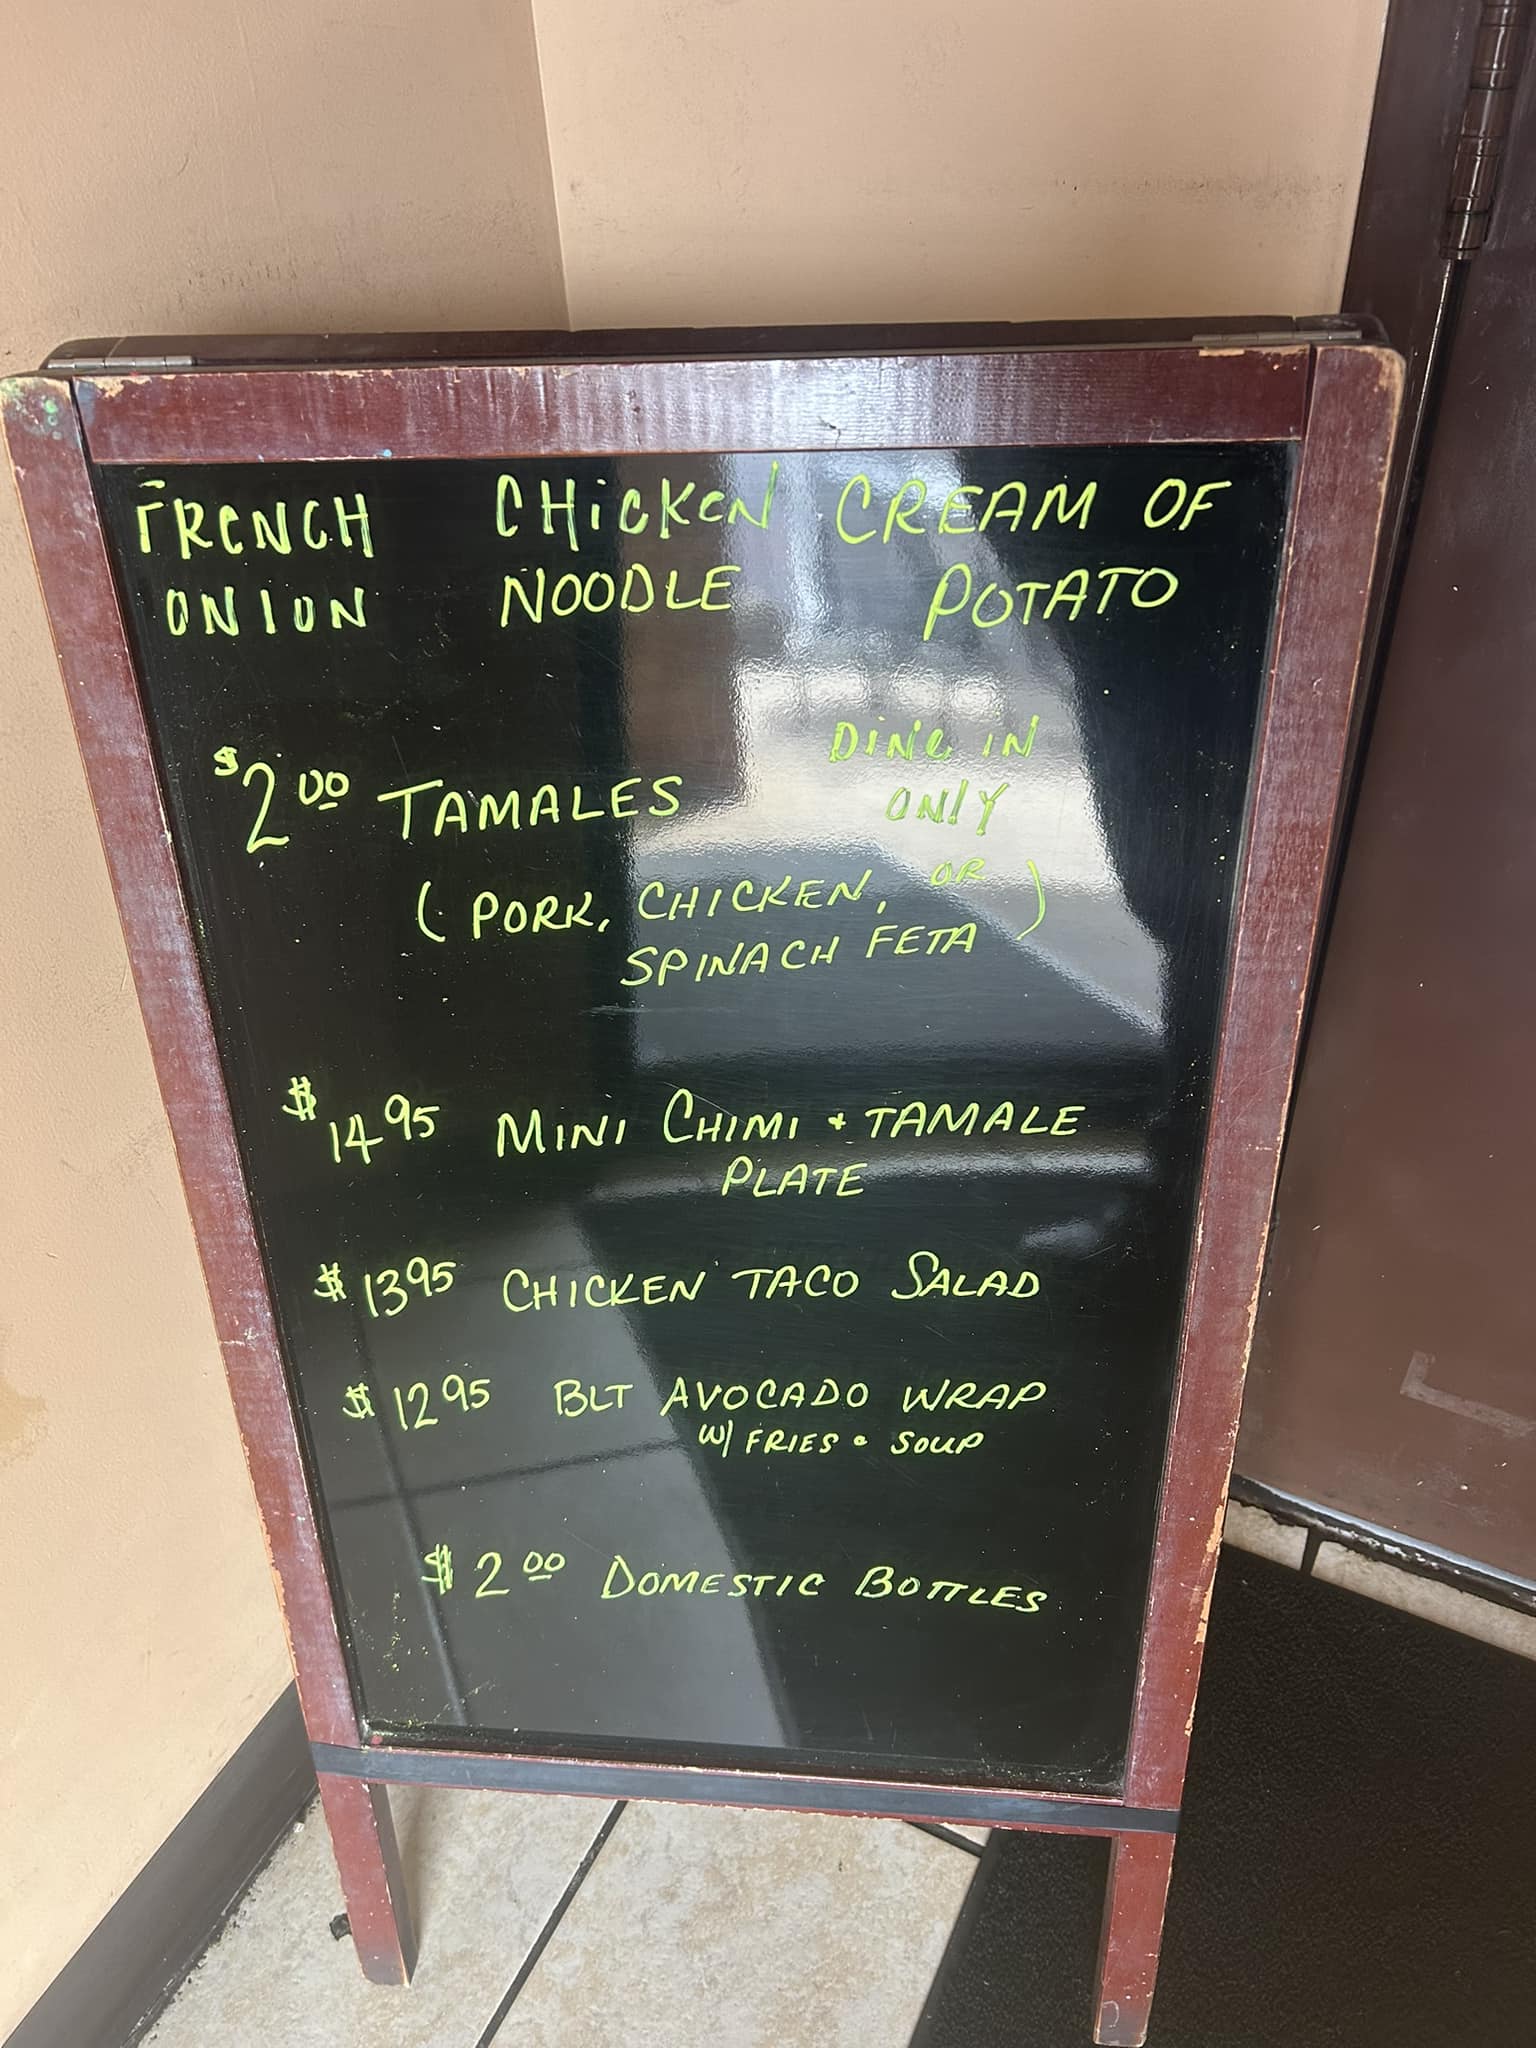 FRENCH CHICKEN CREAM OF
ONION NOODLE POTATO
$2.00 TAMALES
DINE IN
ONLY
(PORK, CHICKEN, OR
SPINACH FETA)
$14.95 MINI CHIMI + TAMALE
PLATE
$13.95 CHICKEN TACO SALAD
$12.95 BLT AVOCADO WRAP
W/ FRIES & SOUP
$2.00 DOMESTIC BOTTLES